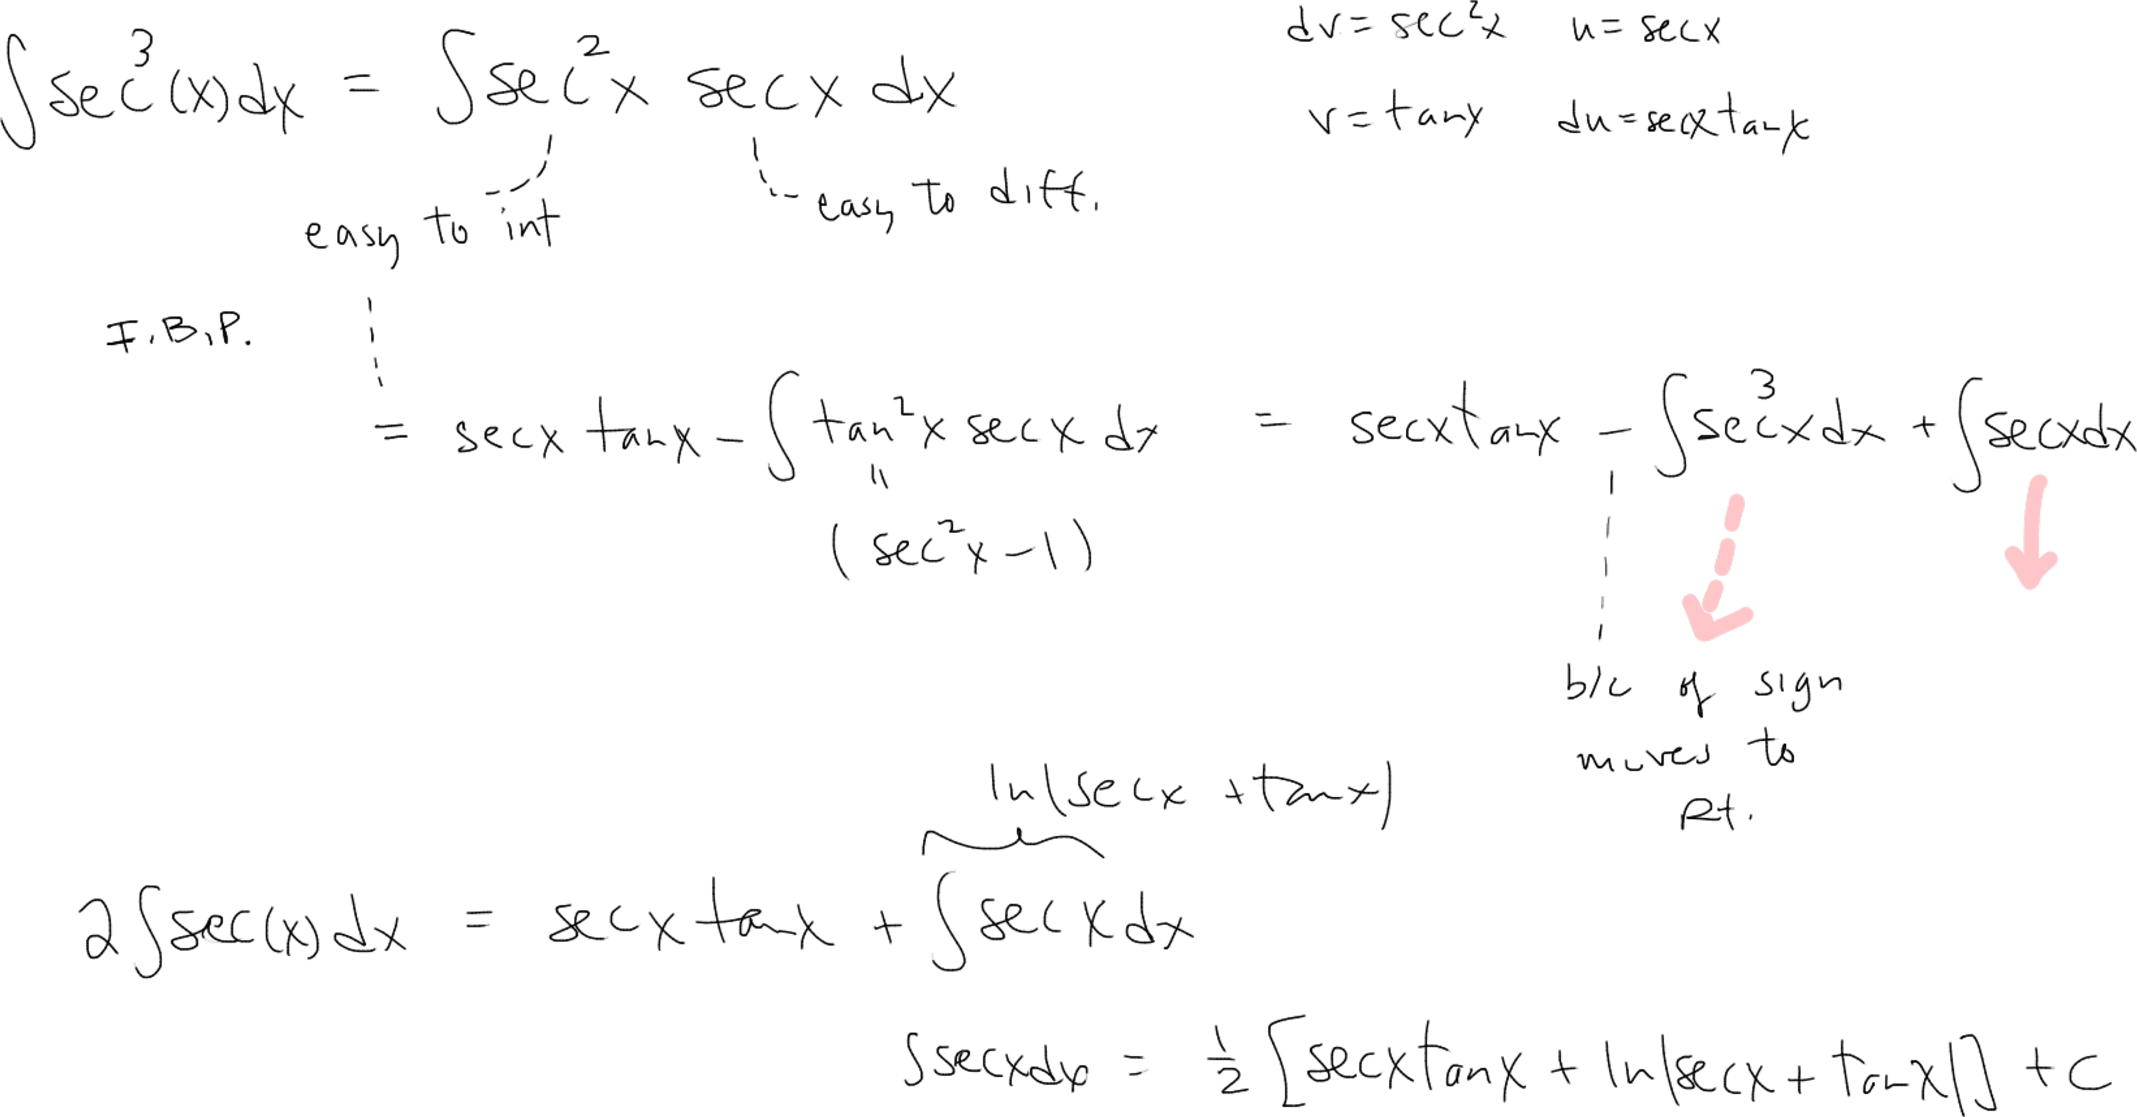 ∫sec³(x)dx = ∫sec²x secx dx
dv = sec²x u = secx
v = tanx du = secx tanx
easy to int
easy to diff.
I.B.P.
= secx tanx - ∫tan²x secx dx = secx tanx - ∫sec³x dx + ∫secx dx
||
(sec²x - 1)
b/c of sign
moves to
Rt.
ln|secx + tanx|
2∫sec(x)dx = secx tanx + ∫secx dx
∫secx dx = 1/2 [secx tanx + ln|secx + tanx|] + C